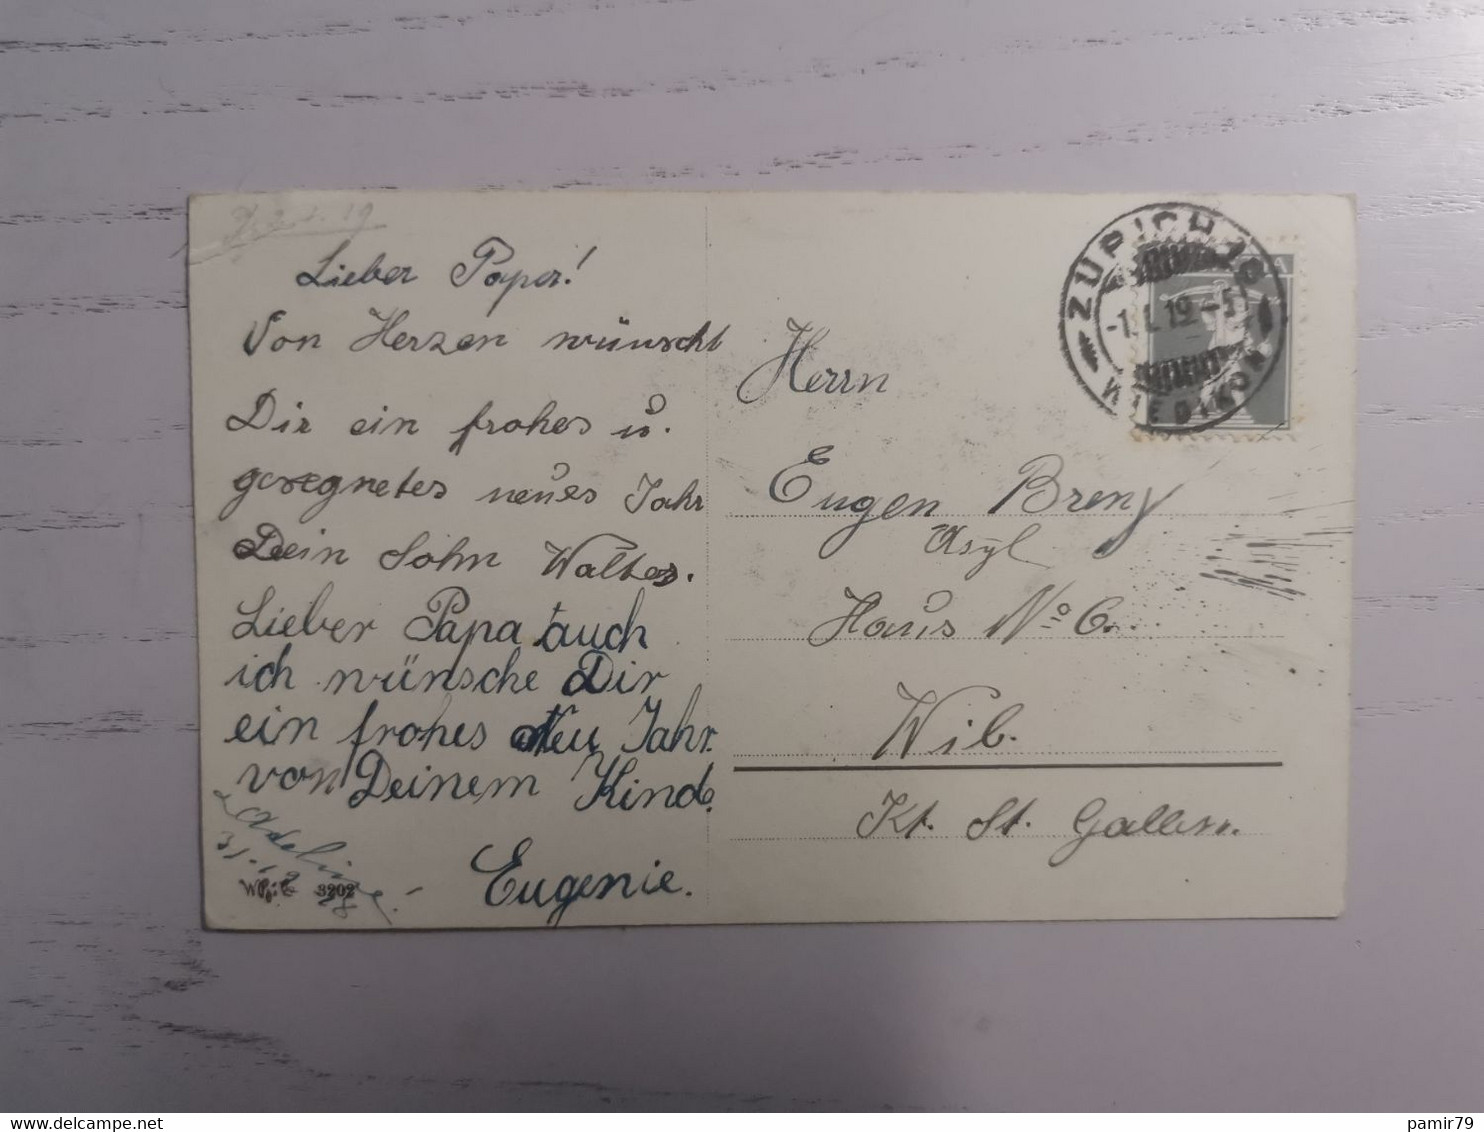 Lieber Papa!
Von Herzen wünscht
Dir ein frohes u.
gesegnetes neues Jahr
Dein Sohn Walter.
Lieber Papa auch
ich wünsche Dir
ein frohes Neu Jahr.
von Deinem Kind.
Eugenie.
Adeline!
3202
ZÜRICH 10
-1.I.19.-5
WIEDIKON
Herrn
Eugen Breny
Asyl
Haus No 6.
Wil.
Kt. St. Gallen.
delcampe.net
pamir79